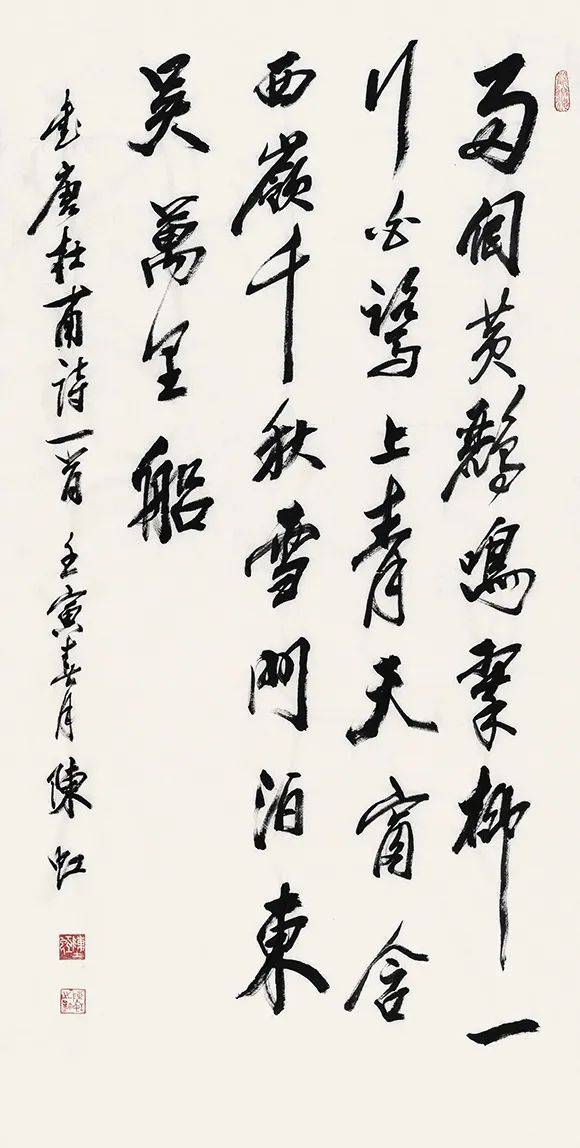 兩個黃鸝鳴翠柳一
行白鷺上青天窗含
西嶺千秋雪門泊東
吳萬里船
書唐杜甫詩一首 壬寅春月 陳虹